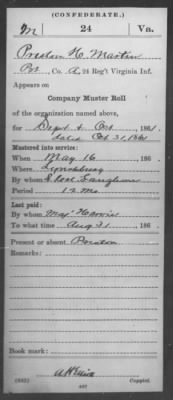 (CONFEDERATE.)
M 24 Va.
Preston H. Martin
Pvt, Co. A, 24 Reg't Virginia Inf.
Appears on
Company Muster Roll
of the organization named above,
for Sept & Oct, 1861.
dated Oct 31, 1861
Mustered into service:
When May 16, 186 .
Where Lynchburg
By whom
Period 12 Mo
Last paid:
By whom Maj Harris
To what time Aug 31, 186 .
Present or absent Present
Remarks:
Book mark:
(642)
Copyist.